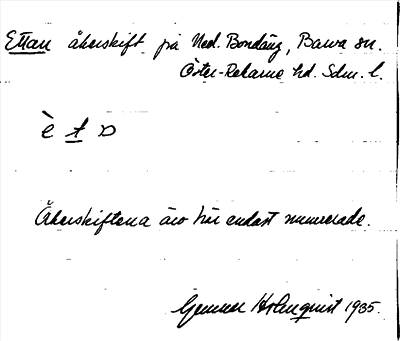 Ettan åkerskift på Ned. Bondäng, Barva sn.
Öster-Rekarne hd. Sdm. l.
è t ɷ
Åkerskiftena äro här endast numrerade.
Gunnar Holmquist 1935.